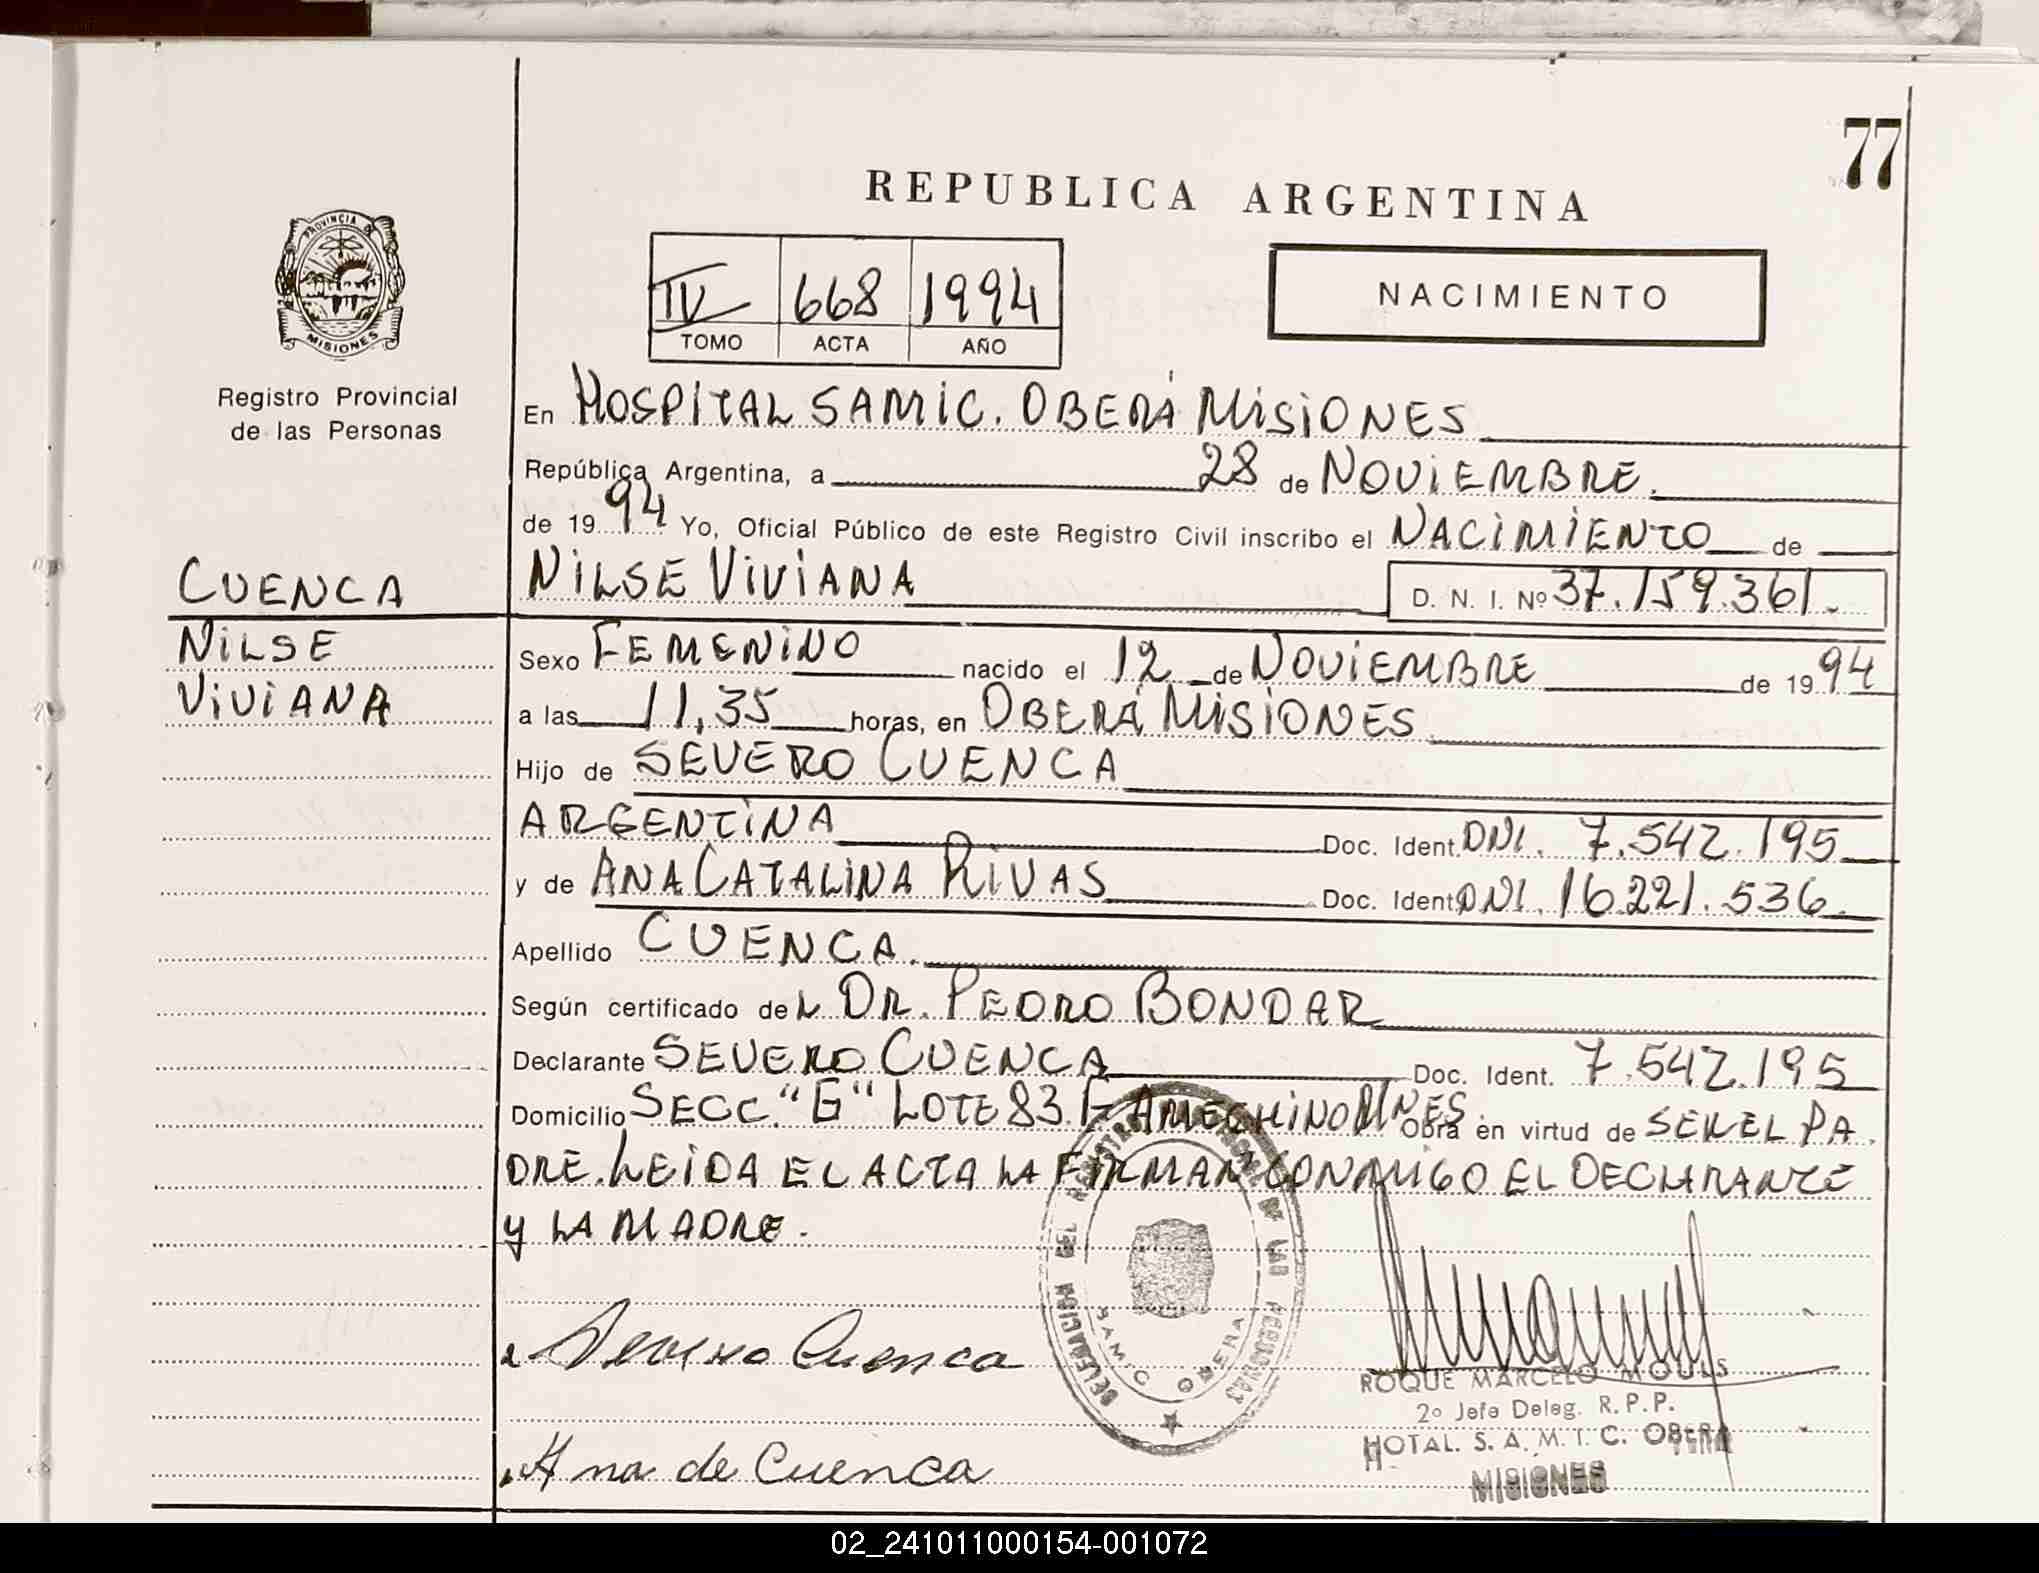 77
REPUBLICA ARGENTINA
PROVINCIA DE
MISIONES
Registro Provincial
de las Personas
IV 668 1994
TOMO ACTA AÑO
NACIMIENTO
En HOSPITAL SAMIC. OBERÁ MISIONES
República Argentina, a 28 de NOVIEMBRE.
de 1994 Yo, Oficial Público de este Registro Civil inscribo el NACIMIENTO de
CUENCA
NILSE
VIVIANA
NILSE VIVIANA D. N. I. Nº 37.159.361.
Sexo FEMENINO nacido el 12 de NOVIEMBRE de 1994
a las 11,35 horas, en OBERÁ MISIONES
Hijo de SEVERO CUENCA
ARGENTINA Doc. Ident. DNI. 7.542.195
y de ANA CATALINA RIVAS Doc. Ident. DNI. 16.221.536.
Apellido CUENCA.
Según certificado del DR. PEDRO BONDAR
Declarante SEVERO CUENCA Doc. Ident. 7.542.195
Domicilio SECC. "G" LOTE 83. AMEGHINO MNES. Obra en virtud de SER EL PA
DRE. LEIDA EL ACTA LA FIRMAN CONMIGO EL DECLARANTE
Y LA MADRE.
DELEGACION DEL REGISTRO DE LAS PERSONAS
SAMIC OBERA
Severo Cuenca
Ana de Cuenca
ROQUE MARCELO MOULS
2º Jefe Deleg. R.P.P.
HOTAL. S. A. M. I. C. OBERA
MISIONES
02_241011000154-001072